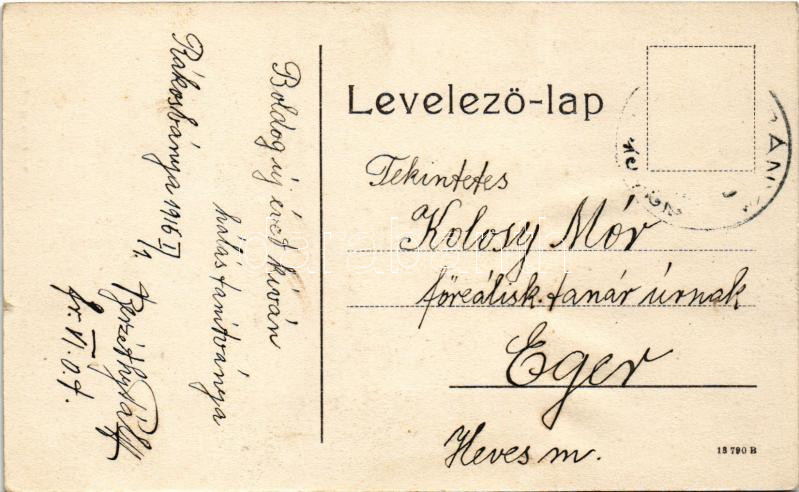 Boldog új évet kíván
hálás tanítványa
Rákosbánya 1916 I/1.
fr. VI. o. t.
Levelező-lap
Tekintetes
Kolosy Mór
főreálisk. tanár úrnak
Eger
Heves m.
13 790 B